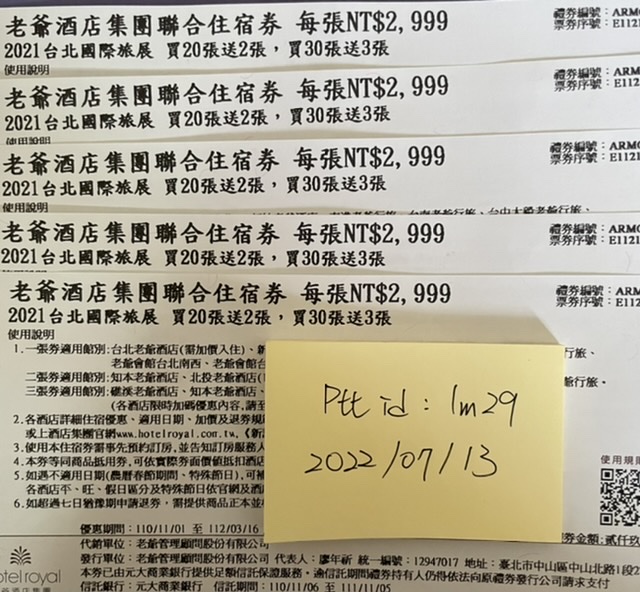 老爺酒店集團聯合住宿券 每張NT$2,999
2021台北國際旅展 買20張送2張，買30張送3張
禮券編號：ARM
票券序號：E112
使用說明
老爺酒店集團聯合住宿券 每張NT$2,999
2021台北國際旅展 買20張送2張，買30張送3張
禮券編號：ARM
票券序號：E112
使用說明
老爺酒店集團聯合住宿券 每張NT$2,999
2021台北國際旅展 買20張送2張，買30張送3張
禮券編號：ARM
票券序號：E1121
使用說明
老爺酒店集團聯合住宿券 每張NT$2,999
2021台北國際旅展 買20張送2張，買30張送3張
禮券編號：ARM
票券序號：E1121
老爺酒店集團聯合住宿券 每張NT$2,999
2021台北國際旅展 買20張送2張，買30張送3張
禮券編號：ARM
票券序號：E1121
使用說明
1.一張券適用館別：台北老爺酒店(需加價入住)、新
老爺會館台北南西、老爺會館台
行旅、
二張券適用館別：知本老爺酒店、北投老爺酒店(
三張券適用館別：礁溪老爺酒店、知本老爺
(各酒店限時加碼優惠內容,請至
2.各酒店詳細住宿優惠、適用日期、加價及退券規
或上酒店集團官網www.hotelroyal.com.tw,《新
3.使用本住宿券需事先預約訂房,並告知訂房服務人
4.本券等同商品抵用券,可依實際券面價值抵扣酒店
5.如遇不適用日期(農曆春節期間、特殊節日),可補
各酒店平、旺、假日區分及特殊節日依官網及酒
6.如超過七日猶豫期申請退券,需提供商品正本並
Ptt id : lm29
2022/07/13
使用規
優惠期間：110/11/01 至 112/03/16
券金額：貳仟玖
代銷單位：老爺管理顧問股份有限公
發行單位：老爺管理顧問股份有限公司 代表人：廖年祈 統一編號：12947017 地址：臺北市中山區中山北路1段2
本券已由元大商業銀行提供足額信託保證服務。逾信託期間禮券持有人仍得依法向原禮券發行公司請求支付
信託銀行：元大商業銀行 信託期間：110/11/06 至 111/11/05
hotel royal
老爺酒店集團